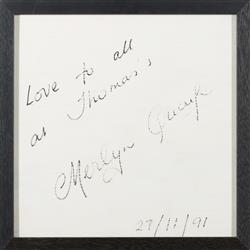 Love to all
at Thomas's
Merlyn
27/11/91